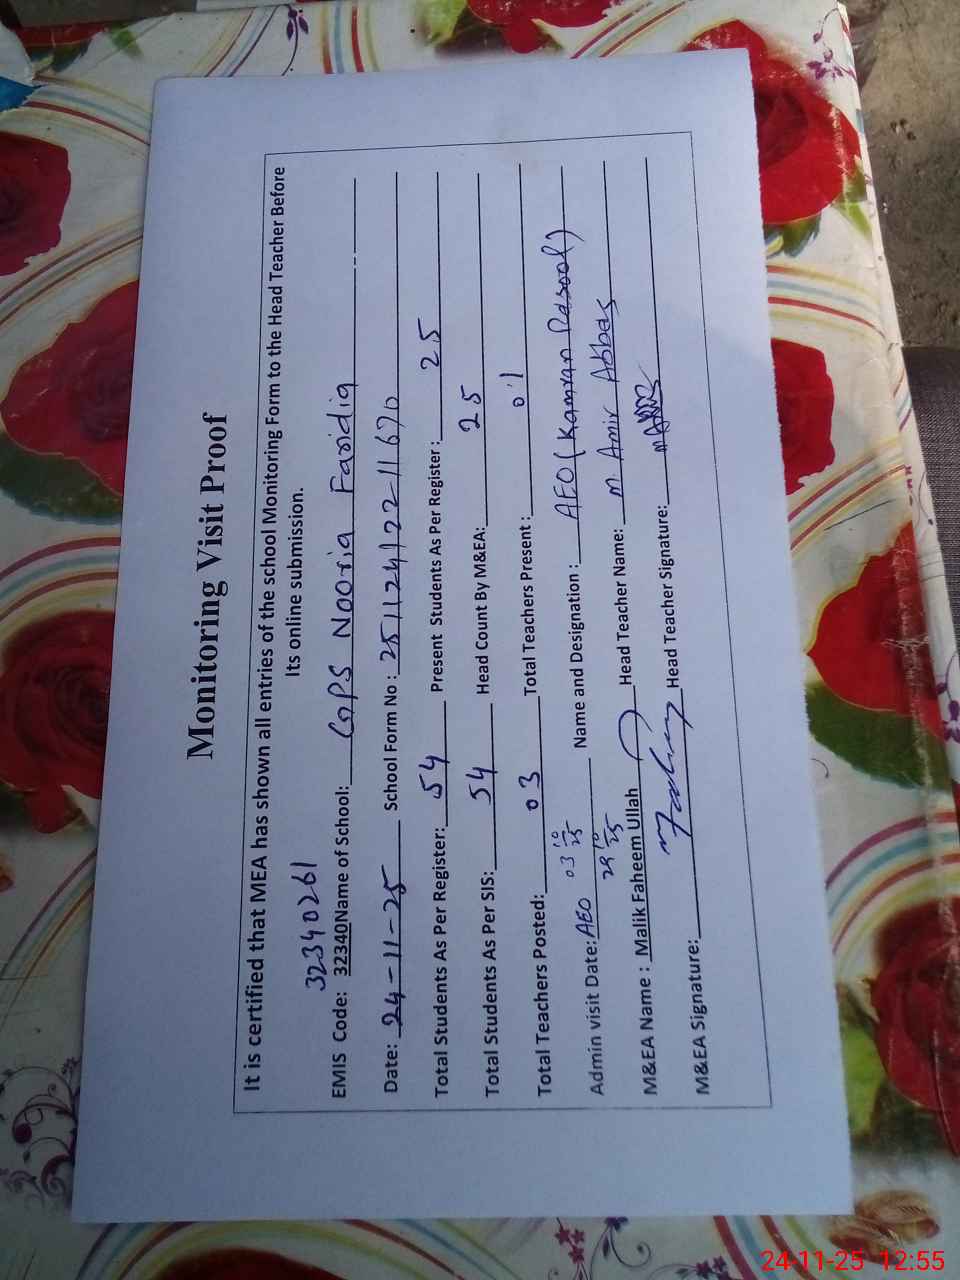 Monitoring Visit Proof
It is certified that MEA has shown all entries of the school Monitoring Form to the Head Teacher Before
Its online submission.
32340261
EMIS Code: 32340 Name of School: GPS Nooria Faridia
Date: 24-11-25 School Form No : 251124122-11670
Total Students As Per Register: 54 Present Students As Per Register : 25
Total Students As Per SIS: 54 Head Count By M&EA: 25
Total Teachers Posted: 03 Total Teachers Present : 01
Admin visit Date: AEO 03 10 25 29 10 25 Name and Designation : AEO (Kamran Rasool)
M&EA Name : Malik Faheem Ullah Head Teacher Name: M. Amir Abbas
M&EA Signature: Head Teacher Signature:
24-11-25 12:55